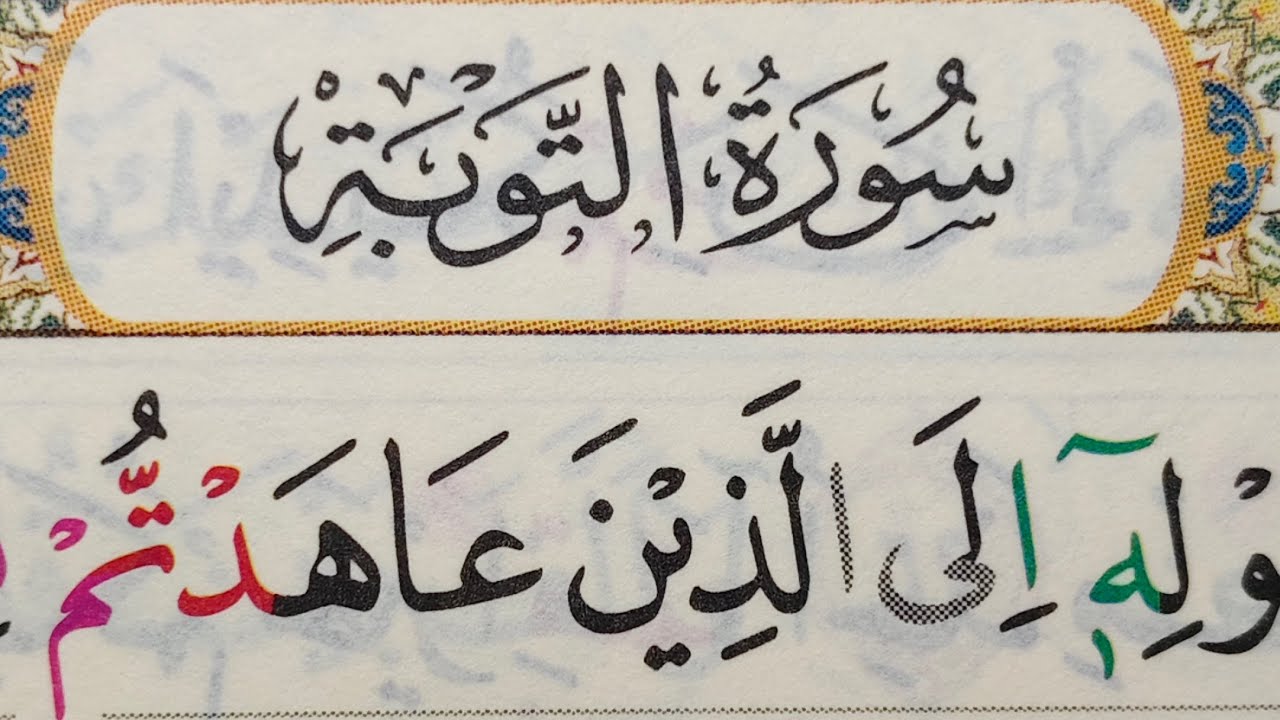 سُورَةُ التَّوْبَةِ
وْلِهٖٓ اِلَى الَّذِيْنَ عَاهَدْتُّمْ